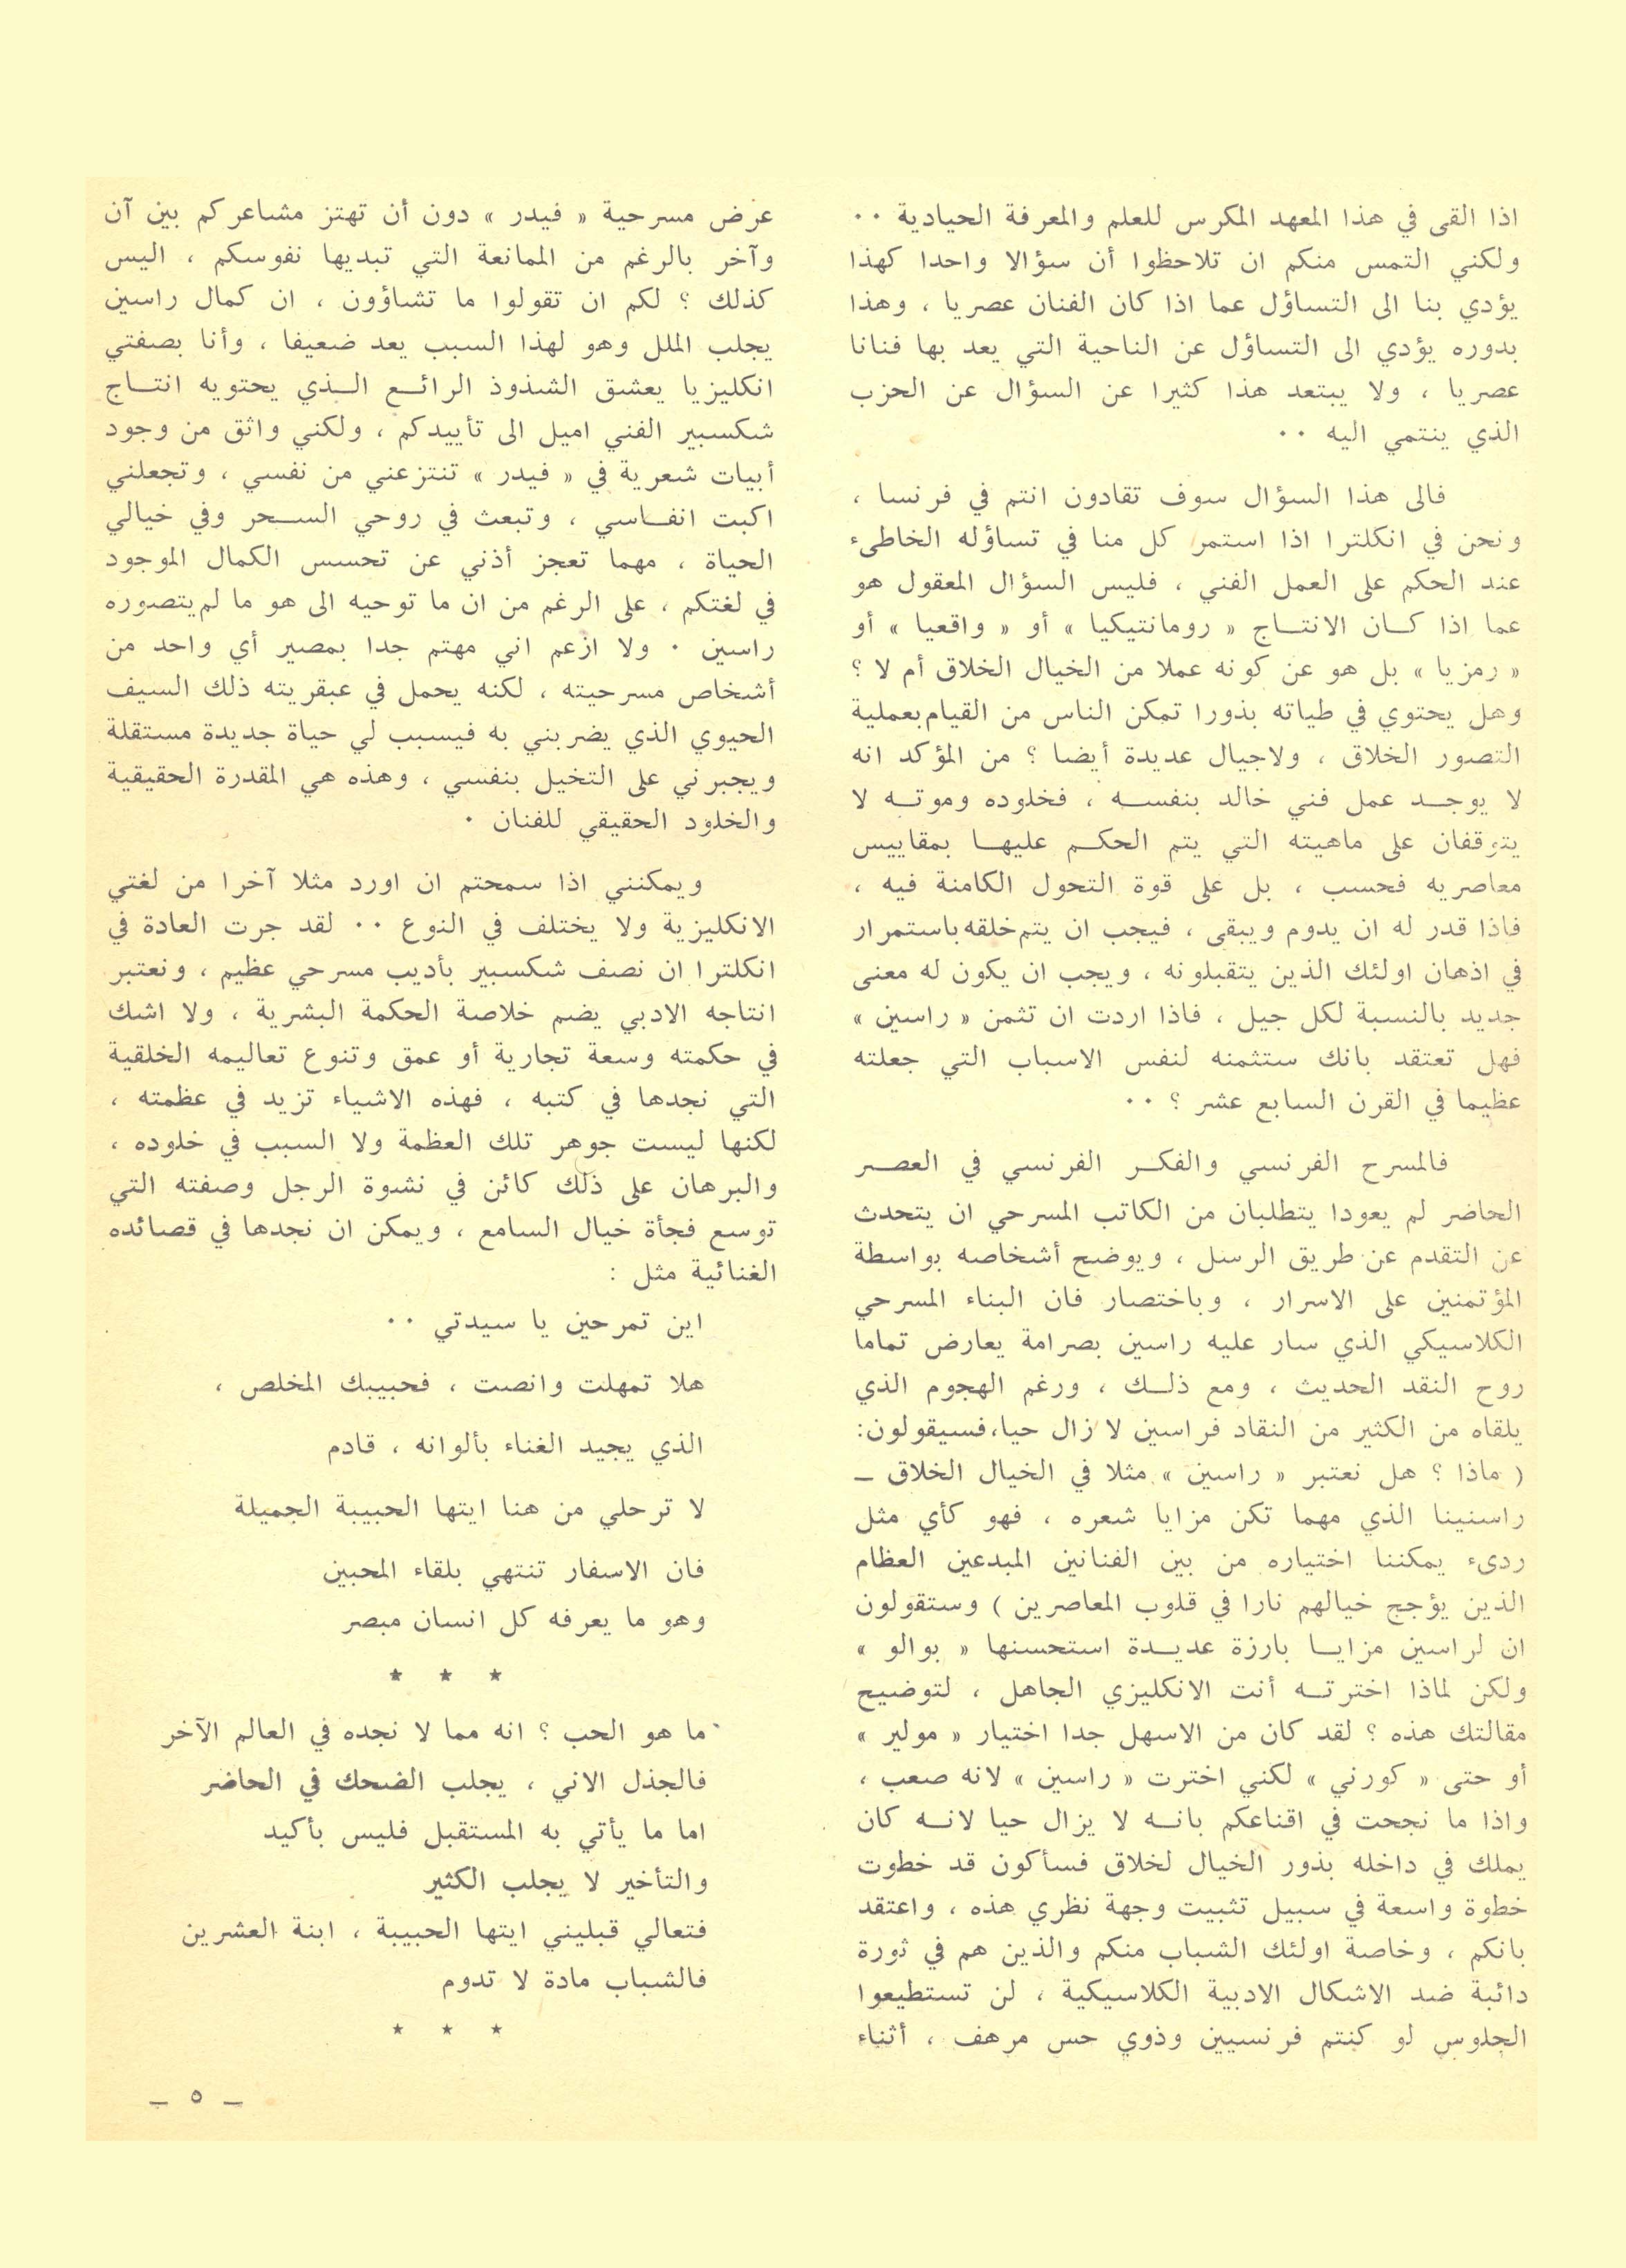 اذا القى في هذا المعهد المكرس للعلم والمعرفة الحيادية ٠٠
ولكني التمس منكم ان تلاحظوا أن سؤالا واحدا كهذا
يؤدي بنا الى التساؤل عما اذا كان الفنان عصريا ، وهذا
بدوره يؤدي الى التساؤل عن الناحية التي يعد بها فنانا
عصريا ، ولا يبتعد هذا كثيرا عن السؤال عن الحزب
الذي ينتمي اليه ٠٠
فالى هذا السؤال سوف تقادون انتم في فرنسا ،
ونحن في انكلترا اذا استمر كل منا في تساؤله الخاطىء
عند الحكم على العمل الفني ، فليس السؤال المعقول هو
عما اذا كان الانتاج « رومانتيكيا » أو « واقعيا » أو
« رمزيا » بل هو عن كونه عملا من الخيال الخلاق أم لا ؟
وهل يحتوي في طياته بذورا تمكن الناس من القيام بعملية
التصور الخلاق ، ولاجيال عديدة أيضا ؟ من المؤكد انه
لا يوجد عمل فني خالد بنفسه ، فخلوده وموته لا
يتوقفان على ماهيته التي يتم الحكم عليها بمقاييس
معاصريه فحسب ، بل على قوة التحول الكامنة فيه ،
فاذا قدر له ان يدوم ويبقى ، فيجب ان يتم خلقه باستمرار
في اذهان اولئك الذين يتقبلونه ، ويجب ان يكون له معنى
جديد بالنسبة لكل جيل ، فاذا اردت ان تثمن « راسين »
فهل تعتقد بانك ستثمنه لنفس الاسباب التي جعلته
عظيما في القرن السابع عشر ؟ ٠٠
فالمسرح الفرنسي والفكر الفرنسي في العصر
الحاضر لم يعودا يتطلبان من الكاتب المسرحي ان يتحدث
عن التقدم عن طريق الرسل ، ويوضح أشخاصه بواسطة
المؤتمنين على الاسرار ، وباختصار فان البناء المسرحي
الكلاسيكي الذي سار عليه راسين بصرامة يعارض تماما
روح النقد الحديث ، ومع ذلك ، ورغم الهجوم الذي
يلقاه من الكثير من النقاد فراسين لا زال حيا، فسيقولون:
( ماذا ؟ هل نعتبر « راسين » مثلا في الخيال الخلاق ـ
راسنينا الذي مهما تكن مزايا شعره ، فهو كأي مثل
ردىء يمكننا اختياره من بين الفنانين المبدعين العظام
الذين يؤجج خيالهم نارا في قلوب المعاصرين ) وستقولون
ان لراسين مزايا بارزة عديدة استحسنها « بوالو »
ولكن لماذا اخترته أنت الانكليزي الجاهل ، لتوضيح
مقالتك هذه ؟ لقد كان من الاسهل جدا اختيار « مولير »
أو حتى « كورني » لكني اخترت « راسين » لانه صعب ،
واذا ما نجحت في اقناعكم بانه لا يزال حيا لانه كان
يملك في داخله بذور الخيال لخلاق فسأكون قد خطوت
خطوة واسعة في سبيل تثبيت وجهة نظري هذه ، واعتقد
بانكم ، وخاصة اولئك الشباب منكم والذين هم في ثورة
دائبة ضد الاشكال الادبية الكلاسيكية ، لن تستطيعوا
الجلوس لو كنتم فرنسيين وذوي حس مرهف ، أثناء
عرض مسرحية « فيدر » دون أن تهتز مشاعركم بين آن
وآخر بالرغم من الممانعة التي تبديها نفوسكم ، اليس
كذلك ؟ لكم ان تقولوا ما تشاؤون ، ان كمال راسين
يجلب الملل وهو لهذا السبب يعد ضعيفا ، وأنا بصفتي
انكليزيا يعشق الشذوذ الرائع الذي يحتويه انتاج
شكسبير الفني اميل الى تأييدكم ، ولكني واثق من وجود
أبيات شعرية في « فيدر » تنتزعني من نفسي ، وتجعلني
اكبت انفاسي ، وتبعث في روحي السحر وفي خيالي
الحياة ، مهما تعجز أذني عن تحسس الكمال الموجود
في لغتكم ، على الرغم من ان ما توحيه الى هو ما لم يتصوره
راسين ٠ ولا ازعم اني مهتم جدا بمصير أي واحد من
أشخاص مسرحيته ، لكنه يحمل في عبقريته ذلك السيف
الحيوي الذي يضربني به فيسبب لي حياة جديدة مستقلة
ويجبرني على التخيل بنفسي ، وهذه هي المقدرة الحقيقية
والخلود الحقيقي للفنان ٠
ويمكنني اذا سمحتم ان اورد مثلا آخرا من لغتي
الانكليزية ولا يختلف في النوع ٠٠ لقد جرت العادة في
انكلترا ان نصف شكسبير بأديب مسرحي عظيم ، ونعتبر
انتاجه الادبي يضم خلاصة الحكمة البشرية ، ولا اشك
في حكمته وسعة تجارية أو عمق وتنوع تعاليمه الخلقية
التي نجدها في كتبه ، فهذه الاشياء تزيد في عظمته ،
لكنها ليست جوهر تلك العظمة ولا السبب في خلوده ،
والبرهان على ذلك كائن في نشوة الرجل وصفته التي
توسع فجأة خيال السامع ، ويمكن ان نجدها في قصائده
الغنائية مثل :
اين تمرحين يا سيدتي ٠٠
هلا تمهلت وانصت ، فحبيبك المخلص ،
الذي يجيد الغناء بألوانه ، قادم
لا ترحلي من هنا ايتها الحبيبة الجميلة
فان الاسفار تنتهي بلقاء المحبين
وهو ما يعرفه كل انسان مبصر
★ ★ ★
ما هو الحب ؟ انه مما لا نجده في العالم الآخر
فالجذل الاني ، يجلب الضحك في الحاضر
اما ما يأتي به المستقبل فليس بأكيد
والتأخير لا يجلب الكثير
فتعالي قبليني ايتها الحبيبة ، ابنة العشرين
فالشباب مادة لا تدوم
★ ★ ★
ـ ٥ ـ